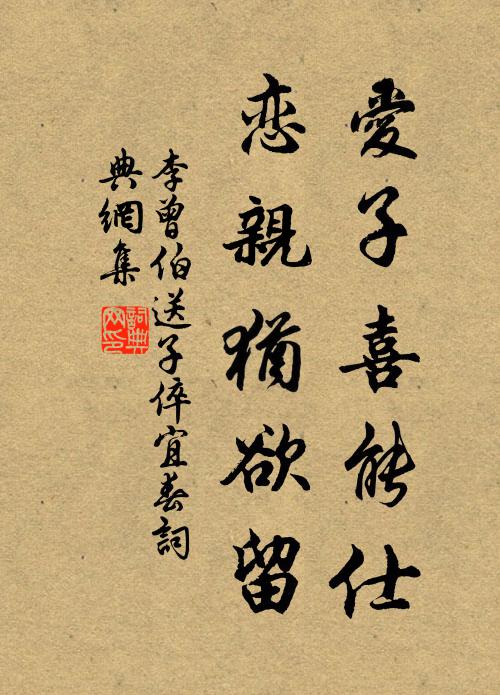 愛子喜能仕
恋親猶欲留
李曾伯送子倅宜春詞
典網集
詞典
网印